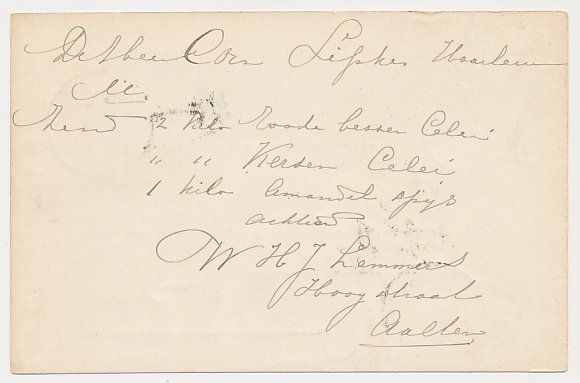 De Heer Corn Lipkes Haarlem
M.
Zend 2 kilo Roode bessen Celei
" " Kersen Celei
1 kilo Amandel spijs
achtend
W H J Lammers
Hoogstraat
Aalten